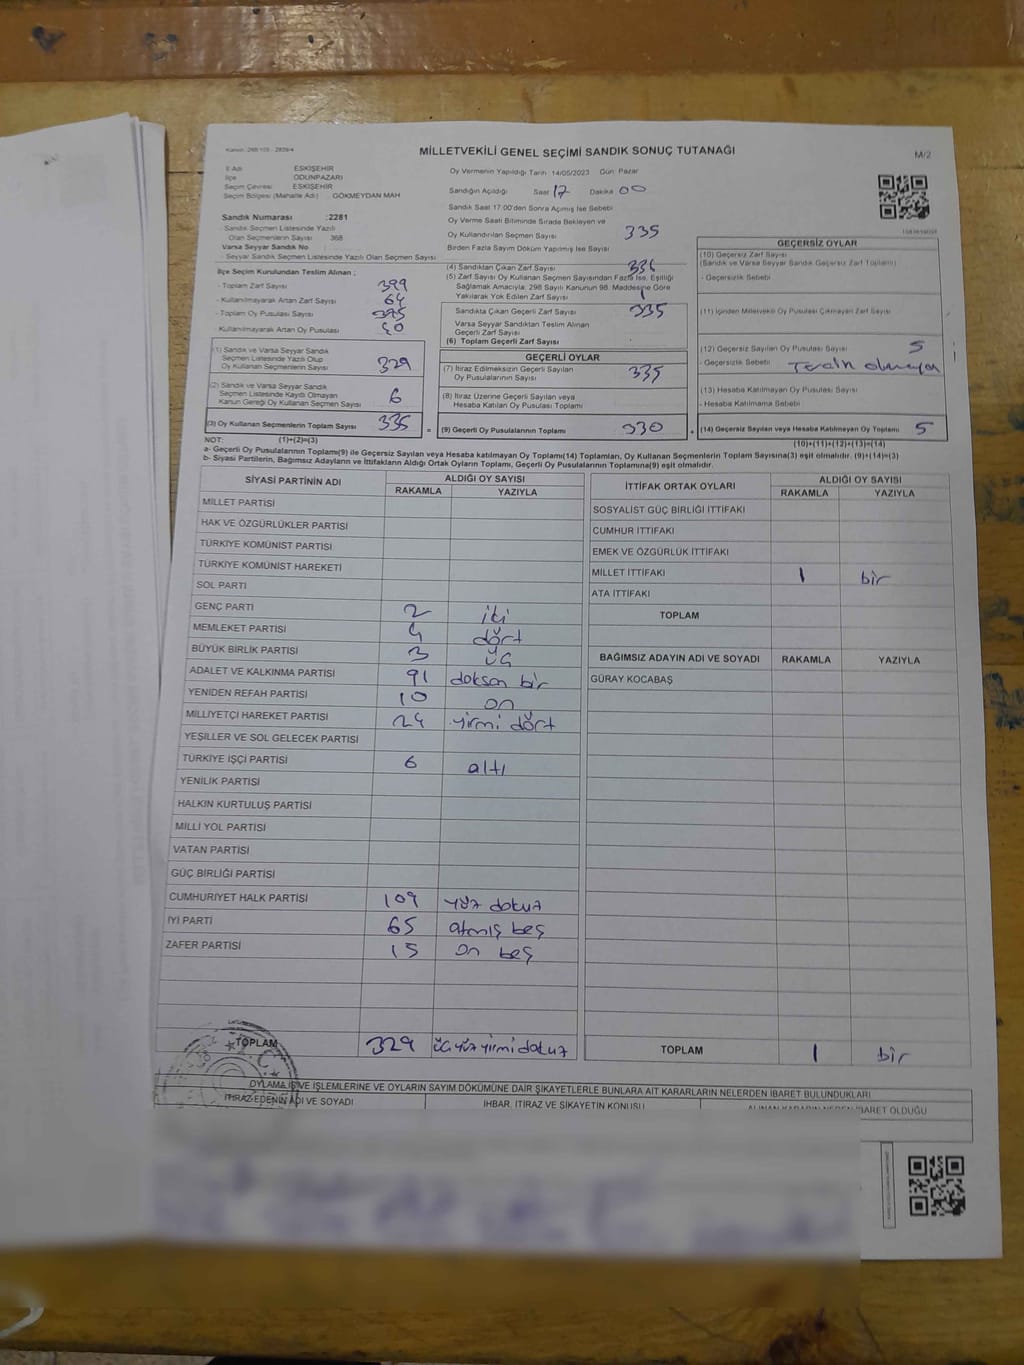 MİLLETVEKİLİ GENEL SEÇİMİ SANDIK SONUÇ TUTANAĞI
M/2
İl Adı ESKİŞEHİR
İlçe ODUNPAZARI
Seçim Çevresi ESKİŞEHİR
Seçim Bölgesi (Mahalle Adı) GÖKMEYDAN MAH
Sandık Numarası :2281
Sandık Seçmen Listesinde Yazılı
Olan Seçmenlerin Sayısı 368
Varsa Seyyar Sandık No
- Seyyar Sandık Seçmen Listesinde Yazılı Olan Seçmen Sayısı
İlçe Seçim Kurulundan Teslim Alınan ;
- Toplam Zarf Sayısı 399
- Kullanılmayarak Artan Zarf Sayısı 64
- Toplam Oy Pusulası Sayısı 395
- Kullanılmayarak Artan Oy Pusulası
(1) Sandık ve Varsa Seyyar Sandık
Seçmen Listesinde Yazılı Olup
Oy Kullanan Seçmenlerin Sayısı 329
(2) Sandık ve Varsa Seyyar Sandık
Seçmen Listesinde Kayıtlı Olmayan
Kanun Gereği Oy Kullanan Seçmen Sayısı 6
(3) Oy Kullanan Seçmenlerin Toplam Sayısı 335
Oy Vermenin Yapıldığı Tarih 14/05/2023 Gün Pazar
Sandığın Açıldığı Saat 17 Dakika 00
Sandık Saat 17:00'den Sonra Açılmış İse Sebebi
Oy Verme Saati Bitiminde Sırada Bekleyen ve
Oy Kullandırılan Seçmen Sayısı 335
Birden Fazla Sayım Döküm Yapılmış İse Sayısı
(4) Sandıktan Çıkan Zarf Sayısı 336
(5) Zarf Sayısı Oy Kullanan Seçmen Sayısından Fazla İse, Eşitliği
Sağlamak Amacıyla, 298 Sayılı Kanunun 98. Maddesine Göre
Yakılarak Yok Edilen Zarf Sayısı 1
Sandıkta Çıkan Geçerli Zarf Sayısı 335
Varsa Seyyar Sandıktan Teslim Alınan
Geçerli Zarf Sayısı
(6) Toplam Geçerli Zarf Sayısı
GEÇERLİ OYLAR
(7) İtiraz Edilmeksizin Geçerli Sayılan
Oy Pusulalarının Sayısı 335
(8) İtiraz Üzerine Geçerli Sayılan veya
Hesaba Katılan Oy Pusulası Toplamı
= (9) Geçerli Oy Pusulalarının Toplamı 330
GEÇERSİZ OYLAR
(10) Geçersiz Zarf Sayısı
(Sandık ve Varsa Seyyar Sandık Geçersiz Zarf Toplamı)
- Geçersizlik Sebebi
(11) İçinden Milletvekili Oy Pusulası Çıkmayan Zarf Sayısı
(12) Geçersiz Sayılan Oy Pusulası Sayısı 5
- Geçersizlik Sebebi Tercih olmayan
(13) Hesaba Katılmayan Oy Pusulası Sayısı
- Hesaba Katılmama Sebebi
+ (14) Geçersiz Sayılan veya Hesaba Katılmayan Oy Toplamı 5
NOT: (1)+(2)=(3) (10)+(11)+(12)+(13)=(14)
a- Geçerli Oy Pusulalarının Toplamı(9) ile Geçersiz Sayılan veya Hesaba katılmayan Oy Toplamı(14) Toplamları, Oy Kullanan Seçmenlerin Toplam Sayısına(3) eşit olmalıdır. (9)+(14)=(3)
b- Siyasi Partilerin, Bağımsız Adayların ve İttifakların Aldığı Ortak Oyların Toplamı, Geçerli Oy Pusulalarının Toplamına(9) eşit olmalıdır.
SİYASİ PARTİNİN ADI ALDIĞI OY SAYISI
RAKAMLA YAZIYLA
MİLLET PARTİSİ
HAK VE ÖZGÜRLÜKLER PARTİSİ
TÜRKİYE KOMÜNİST PARTİSİ
TÜRKİYE KOMÜNİST HAREKETİ
SOL PARTİ
GENÇ PARTİ 2 iki
MEMLEKET PARTİSİ 4 dört
BÜYÜK BİRLİK PARTİSİ 3 üç
ADALET VE KALKINMA PARTİSİ 91 doksan bir
YENİDEN REFAH PARTİSİ 10 on
MİLLİYETÇİ HAREKET PARTİSİ 24 yirmi dört
YEŞİLLER VE SOL GELECEK PARTİSİ
TÜRKİYE İŞÇİ PARTİSİ 6 altı
YENİLİK PARTİSİ
HALKIN KURTULUŞ PARTİSİ
MİLLİ YOL PARTİSİ
VATAN PARTİSİ
GÜÇ BİRLİĞİ PARTİSİ
CUMHURİYET HALK PARTİSİ 109 yüz dokuz
İYİ PARTİ 65 atmış beş
ZAFER PARTİSİ 15 on beş
TOPLAM 329 üçyüz yirmi dokuz
İTTİFAK ORTAK OYLARI ALDIĞI OY SAYISI
RAKAMLA YAZIYLA
SOSYALİST GÜÇ BİRLİĞİ İTTİFAKI
CUMHUR İTTİFAKI
EMEK VE ÖZGÜRLÜK İTTİFAKI
MİLLET İTTİFAKI 1 bir
ATA İTTİFAKI
TOPLAM
BAĞIMSIZ ADAYIN ADI VE SOYADI RAKAMLA YAZIYLA
GÜRAY KOCABAŞ
TOPLAM 1 bir
OYLAMA İŞ VE İŞLEMLERİNE VE OYLARIN SAYIM DÖKÜMÜNE DAİR ŞİKAYETLERLE BUNLARA AİT KARARLARIN NELERDEN İBARET BULUNDUKLARI
İTİRAZ EDENİN ADI VE SOYADI
İHBAR, İTİRAZ VE ŞİKAYETİN KONUSU
ALINAN KARARIN NEDEN İBARET OLDUĞU